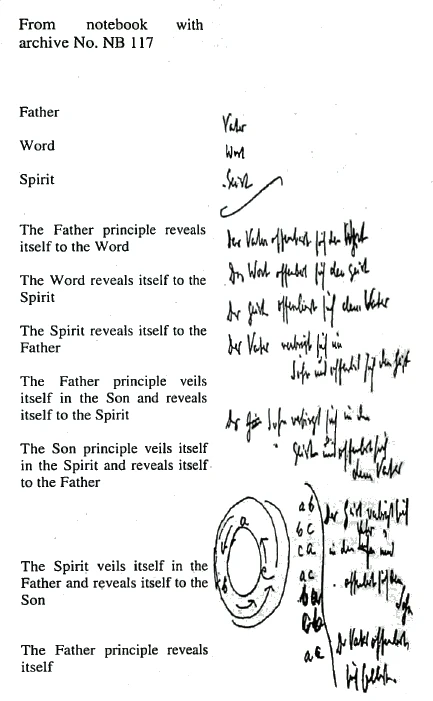 From notebook with
archive No. NB 117
Father
Vater
Word
Wort
Spirit
Geist
The Father principle reveals
itself to the Word
Der Vater offenbart sich dem Wort
The Word reveals itself to the
Spirit
Das Wort offenbart sich dem Geist
The Spirit reveals itself to the
Father
Der Geist offenbart sich dem Vater
The Father principle veils
itself in the Son and reveals
itself to the Spirit
Der Vater verbirgt sich im
Sohn und offenbart sich dem Geist
The Son principle veils itself
in the Spirit and reveals itself
to the Father
Der Sohn verbirgt sich in dem
Geist und offenbart sich
dem Vater
The Spirit veils itself in the
Father and reveals itself to the
Son
a
b
c
ab
bc
ca
ac
Der Geist verbirgt sich
in dem Vater und
offenbart sich dem
Sohn
The Father principle reveals
itself
ac
Der Vater offenbart
sich selbst.